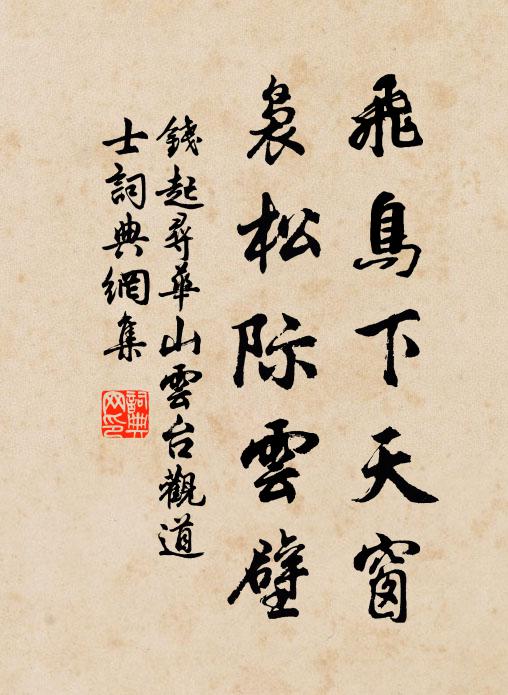 飛鳥下天窗
裊松际雲壁
錢起尋華山雲台觀道
士詞典網集
詞典
网印